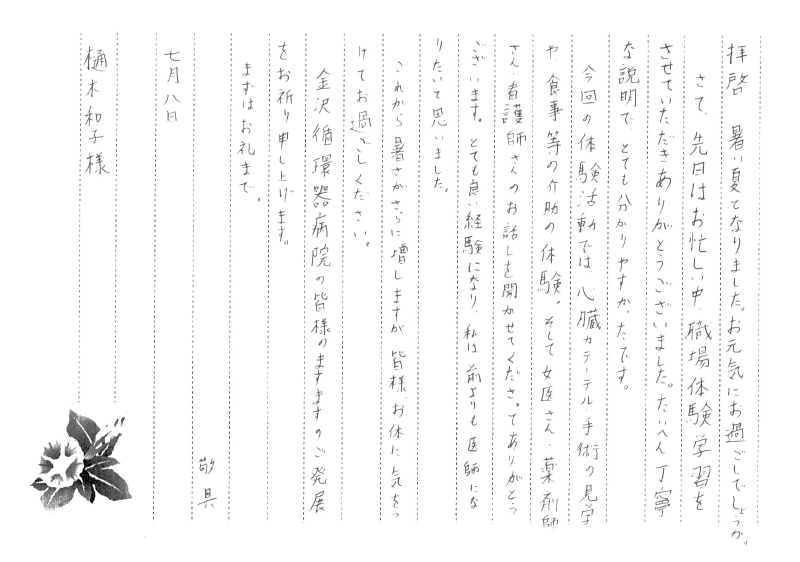 拝啓　暑い夏となりました。お元気にお過ごしでしょうか。
さて、先日はお忙しい中、職場体験学習を
させていただきありがとうございました。たいへん丁寧
な説明で、とても分かりやすかったです。
今回の体験活動では、心臓カテーテル手術の見学
や、食事等の介助の体験。そして女医さん、薬剤師
さん、看護師さんのお話しを聞かせてくださってありがとう
ございます。とても良い経験になり、私は前よりも医師にな
りたいと思いました。
これから暑さがさらに増しますが、皆様、お体に気をつ
けてお過ごしください。
金沢循環器病院の皆様のますますのご発展
をお祈り申し上げます。
まずはお礼まで。
敬具
七月八日
樋木和子様